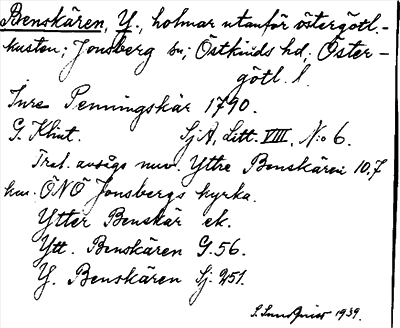 Benskären, Y., holmar utanför östergötl.-
kusten; Jonsberg sn; Östkinds hd; Öster-
götl. l.
Inre Penningskär 1790.
G. Klint. SjA, Litt. VIII, No 6.
Trol. avsågs nuv. Yttre Benskären 10,7
km. ÖNÖ Jonsbergs kyrka.
Ytter Benskär ek.
Ytt. Benskären G.56.
Y. Benskären Sj. 251.
1939.